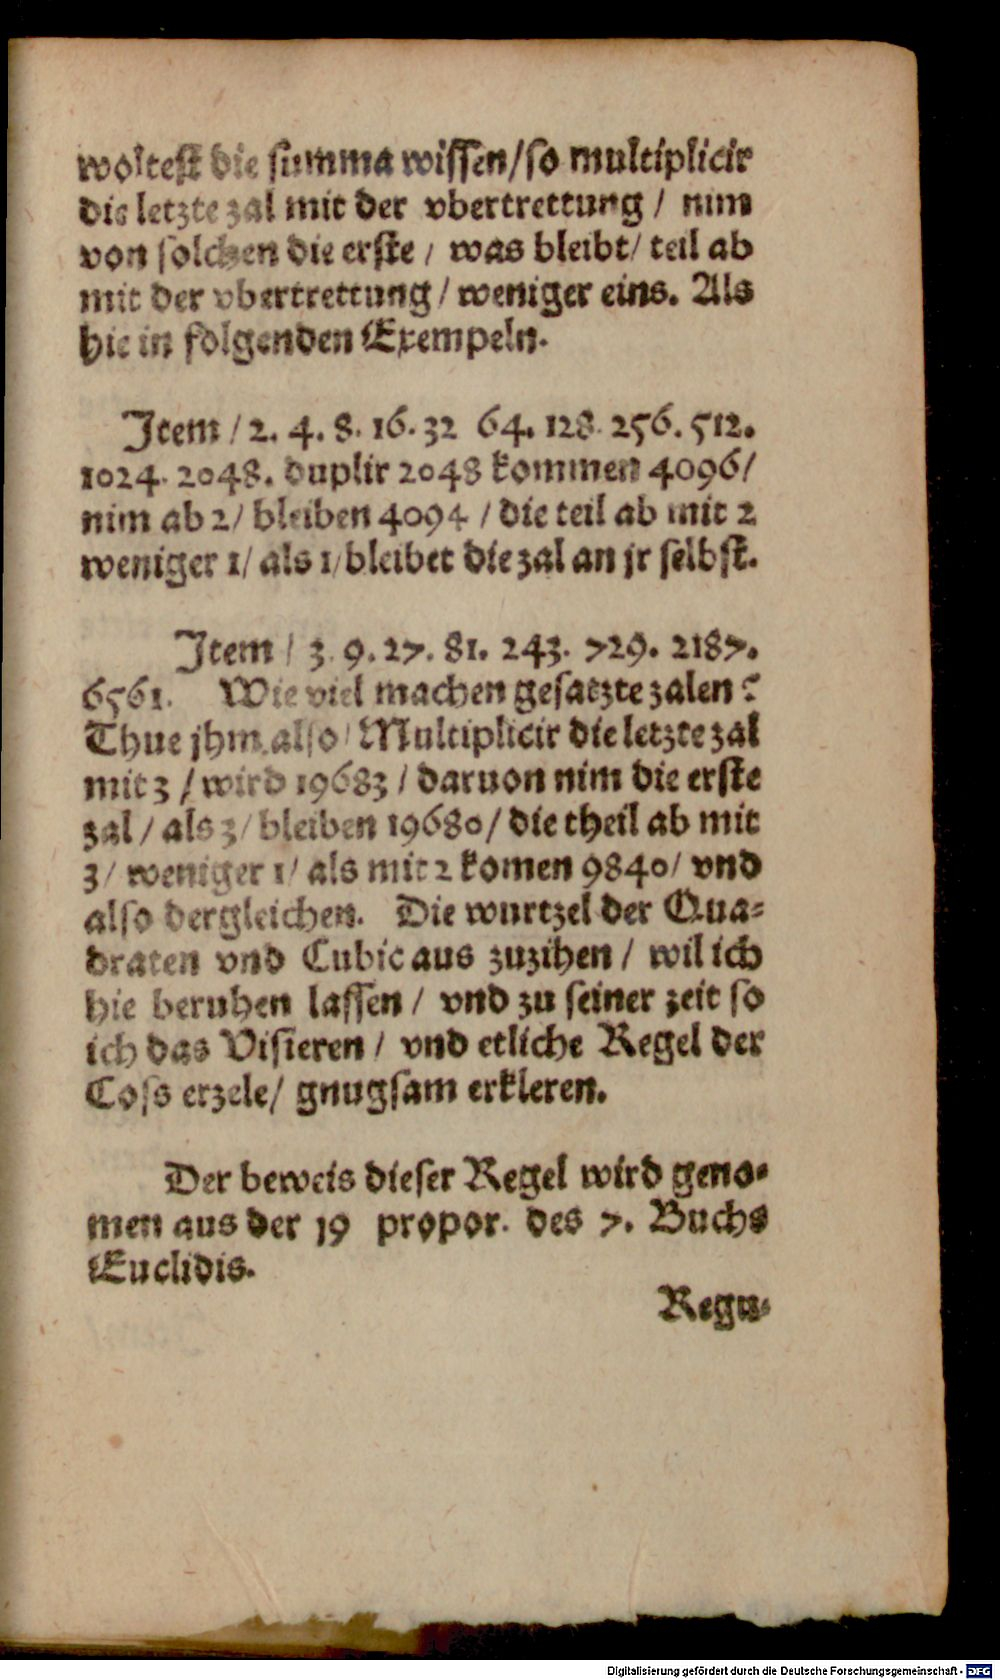 woltest die summa wissen/so multiplicir
die letzte zal mit der vbertrettung / nim
von solchen die erste / was bleibt/ teil ab
mit der vbertrettung / weniger eins. Als
hie in folgenden Exempeln.
Item / 2. 4. 8. 16. 32 64. 128. 256. 512.
1024. 2048. duplir 2048 kommen 4096/
nim ab 2/ bleiben 4094 / die teil ab mit 2
weniger 1/ als 1/bleibet die zal an jr selbst.
Item / 3. 9. 27. 81. 243. 729. 2187.
6561. Wie viel machen gesatzte zalen?
Thue jhm also/ Multiplicir die letzte zal
mit 3 / wird 19683 / daruon nim die erste
zal / als 3/ bleiben 19680/ die theil ab mit
3/ weniger 1/ als mit 2 komen 9840/ vnd
also dergleichen. Die wurtzel der Qua-
draten vnd Cubic aus zuzihen / wil ich
hie beruhen lassen / vnd zu seiner zeit so
ich das Visieren / vnd etliche Regel der
Coss erzele/ gnugsam erkleren.
Der beweis dieser Regel wird geno-
men aus der 19 propor. des 7. Buchs
Euclidis.
Regu-
Digitalisierung gefördert durch die Deutsche Forschungsgemeinschaft - DFG